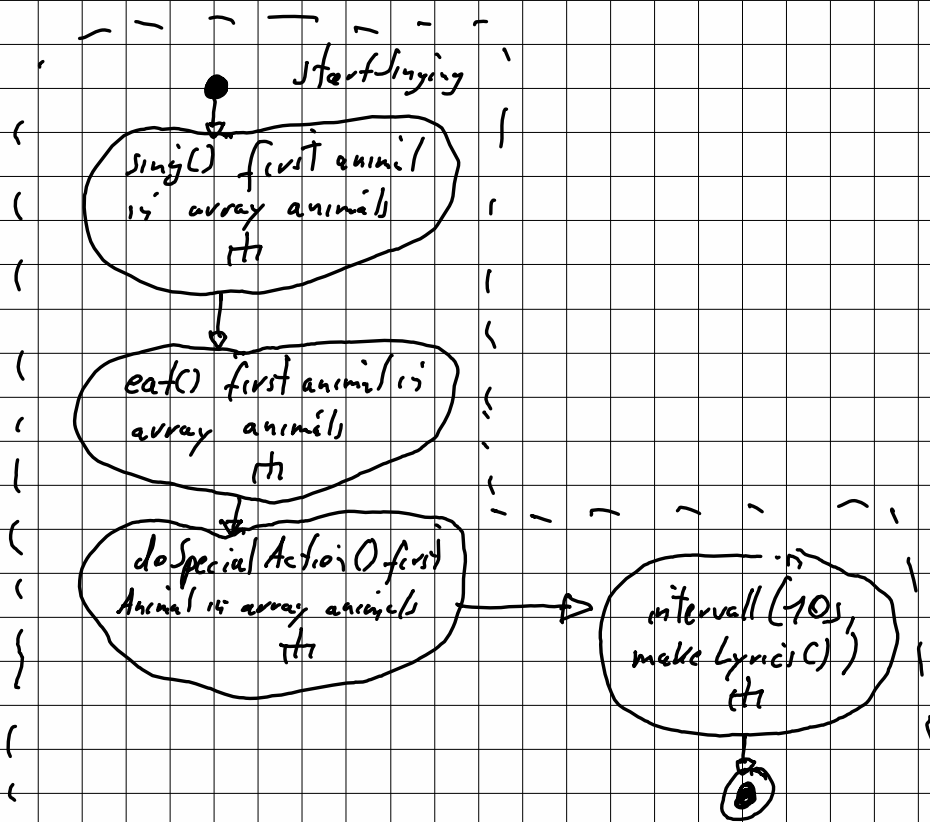 startSinging
sing() first animal
in array animals
eat() first animal in
array animals
doSpecialAction() first
Animal in array animals
intervall(10s,
makeLyrics())